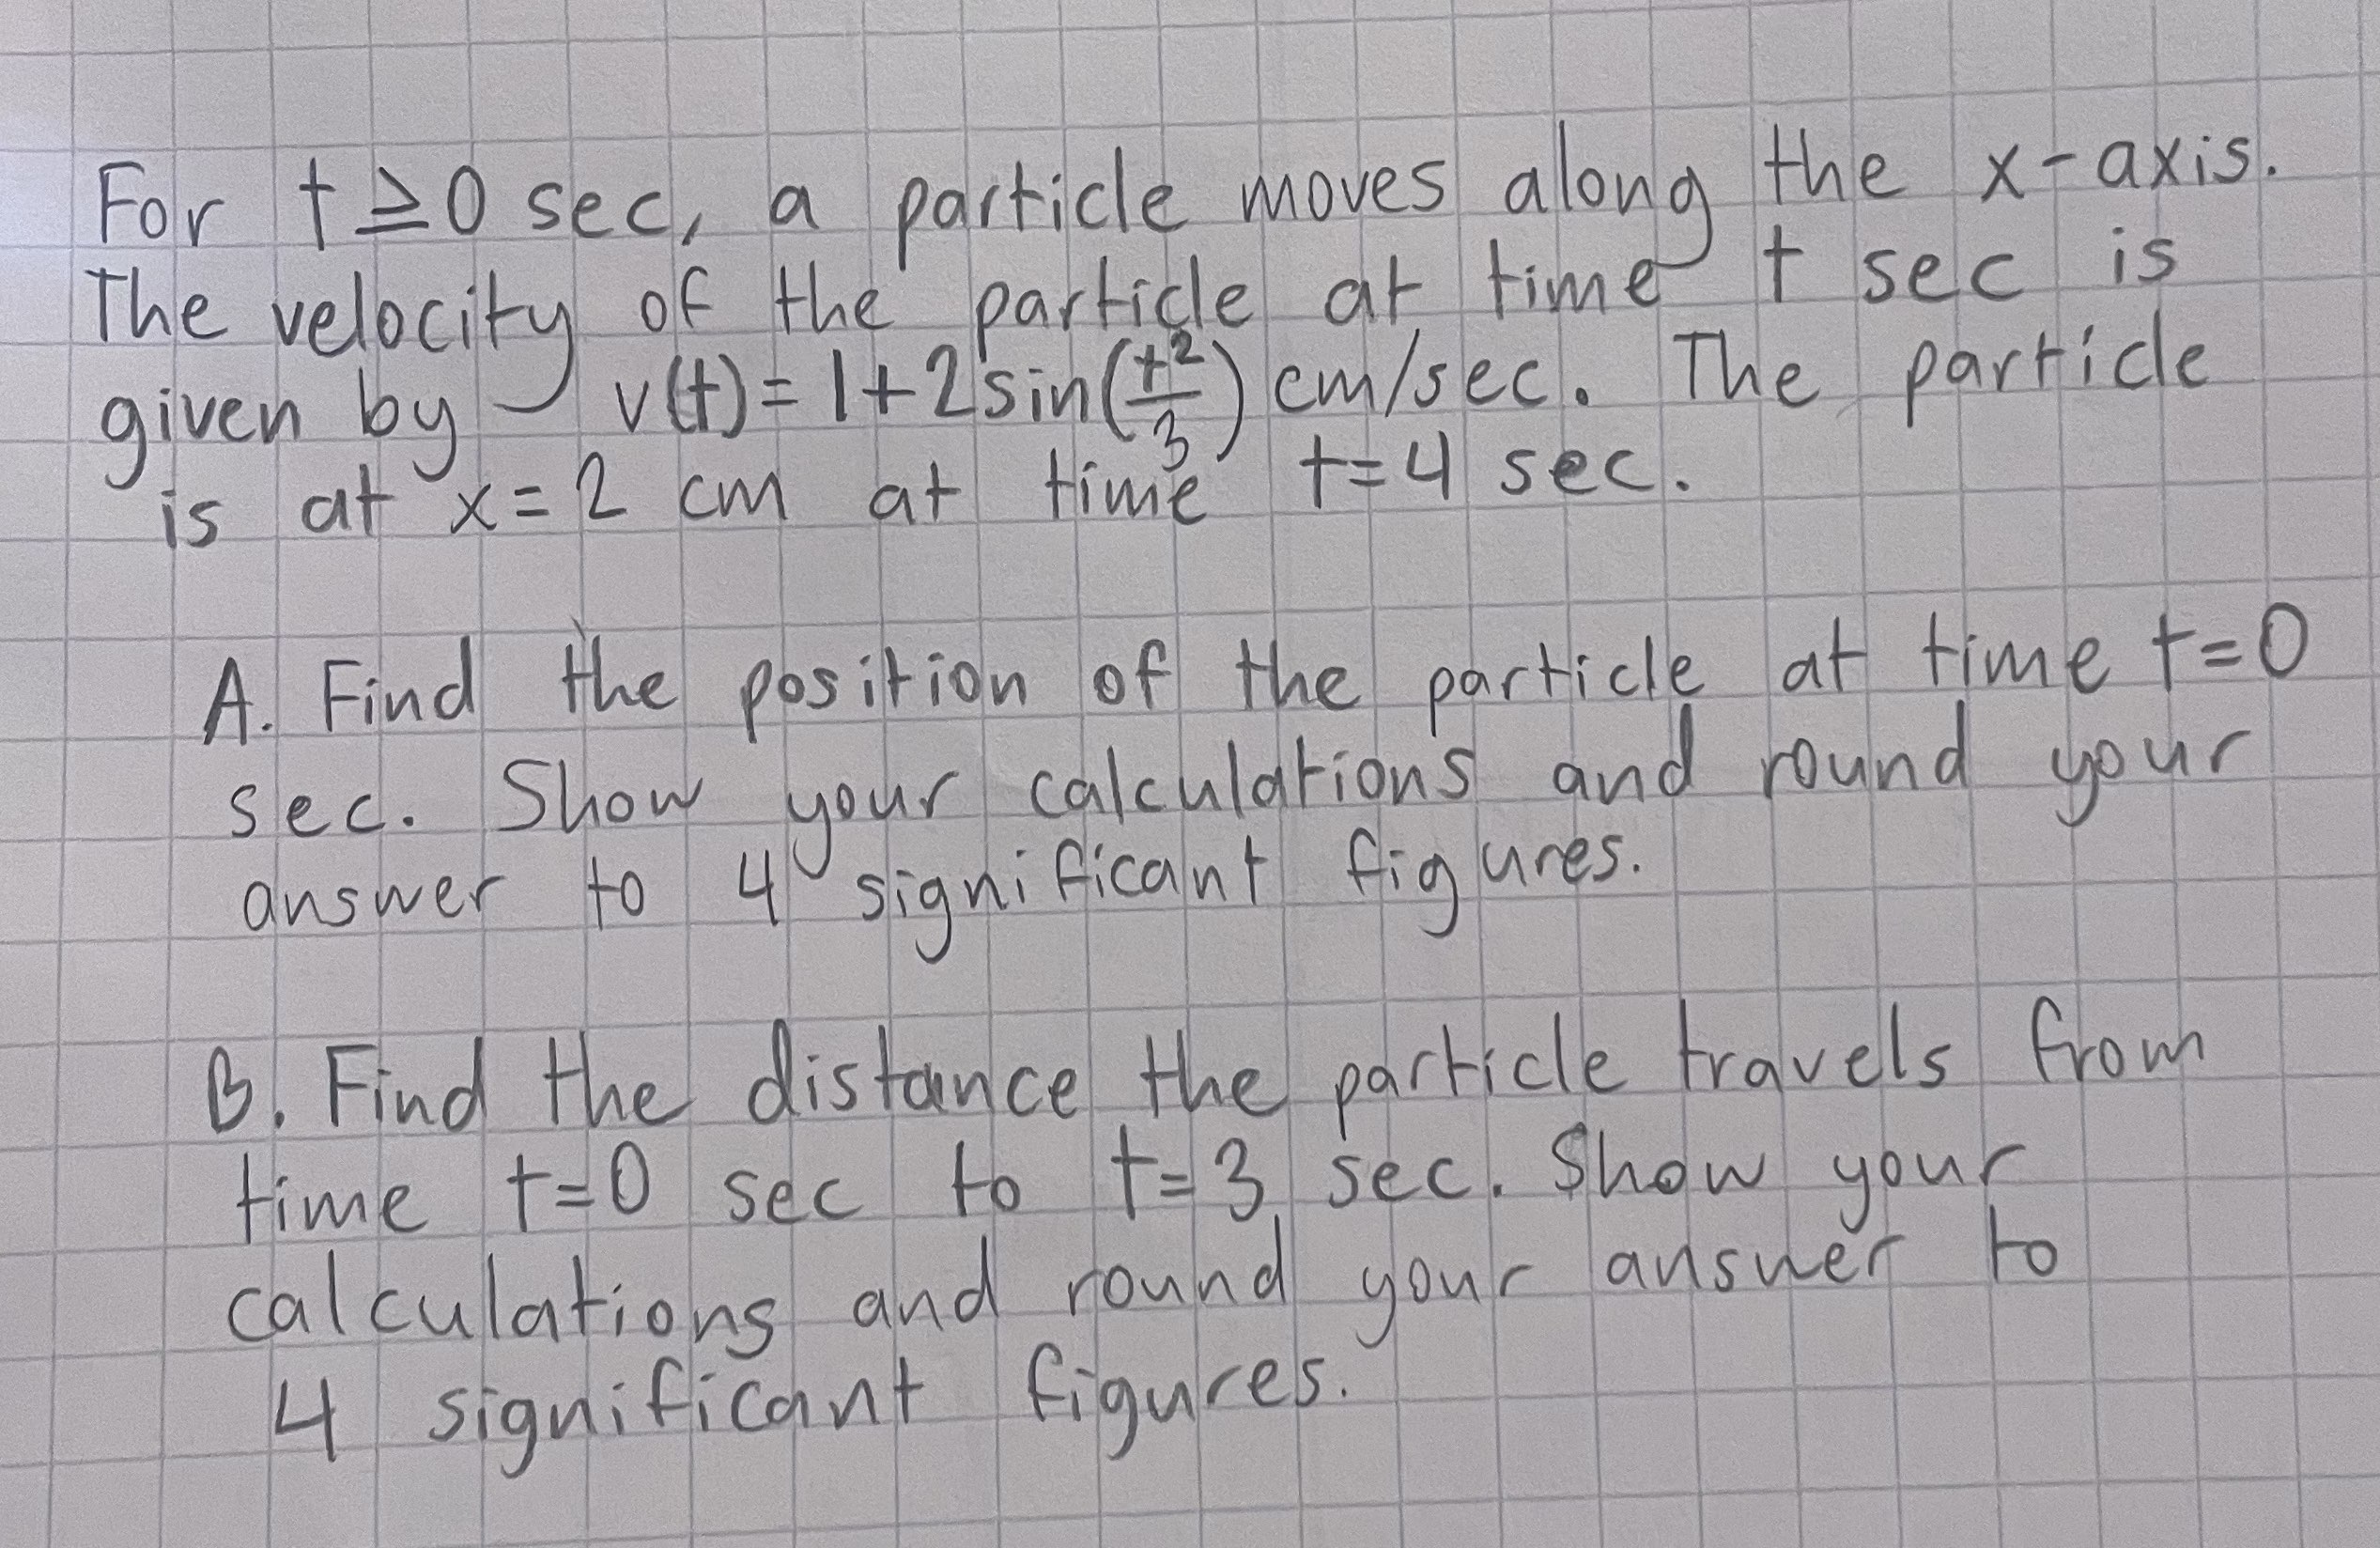 For t ≥ 0 sec, a particle moves along the x-axis.
The velocity of the particle at time t sec is
given by v(t) = 1 + 2 sin(t²/3) cm/sec. The particle
is at x = 2 cm at time t = 4 sec.
A. Find the position of the particle at time t = 0
sec. Show your calculations and round your
answer to 4 significant figures.
B. Find the distance the particle travels from
time t = 0 sec to t = 3 sec. Show your
calculations and round your answer to
4 significant figures.